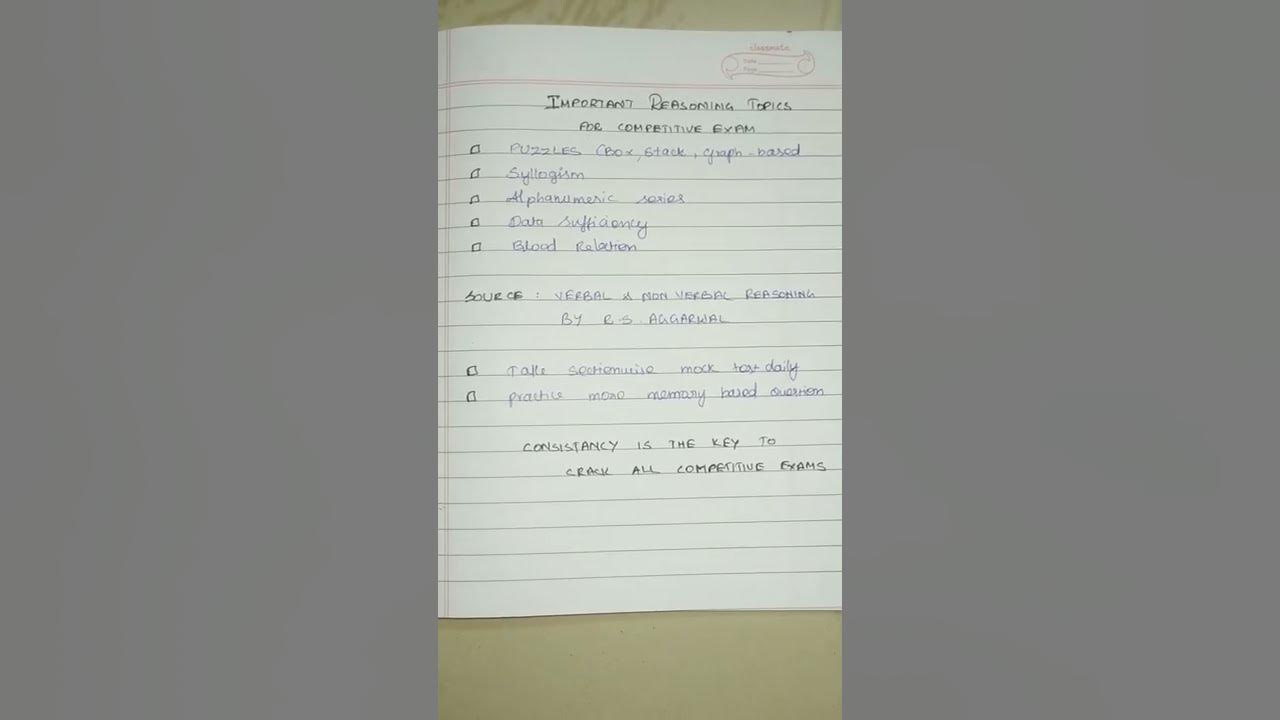 classmate
Date
Page
IMPORTANT REASONING TOPICS
FOR COMPETITIVE EXAM
PUZZLES (Box, Stack, graph-based
Syllogism
Alphanumeric series
Data sufficiency
Blood Relation
SOURCE : VERBAL & NON VERBAL REASONING
BY R.S. AGGARWAL
Take sectionwise mock test daily
practice more memory based question
CONSISTANCY IS THE KEY TO
CRACK ALL COMPETITIVE EXAMS